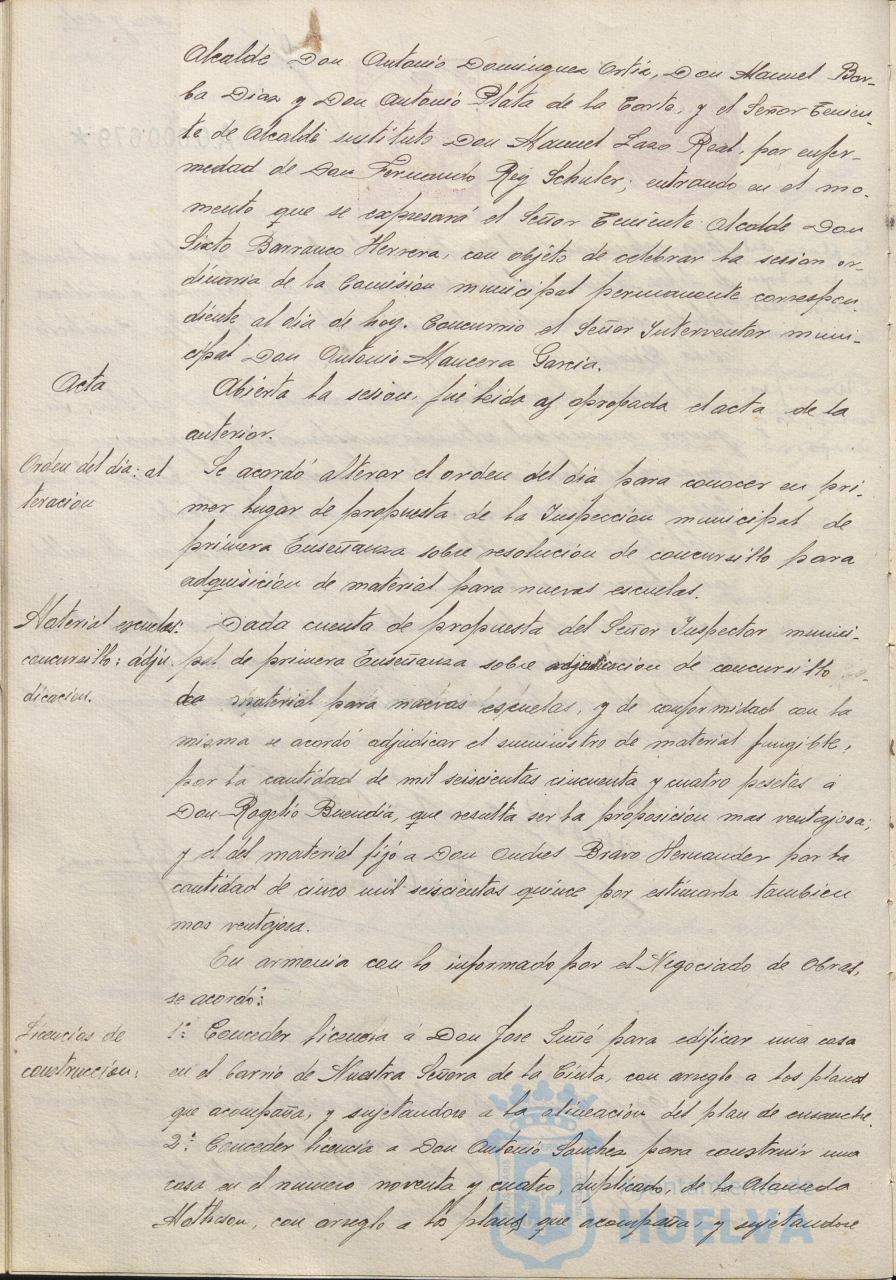 Alcalde Don Antonio Dominguez Ortiz, Don Manuel Bar-
ba Diaz y Don Antonio Plata de la Corte, y el Señor Tenien-
te de Alcalde sustituto Don Manuel Lazo Real, por enfer-
medad de Don Fernando Rey Schuler; entrando en el mo-
mento que se expresará el Señor Teniente Alcalde Don
Sixto Barranco Herrera, con objeto de celebrar la sesion or-
dinaria de la Comisión municipal permanente correspon-
diente al dia de hoy. Concurrió el Señor Interventor muni-
cipal Don Antonio Mancera García.
Acta
Abierta la sesion, fué leida y aprobada el acta de la
anterior.
Orden del dia: al
teracion
Se acordó alterar el orden del dia para conocer en pri-
mer lugar de propuesta de la Inspección municipal de
primera Enseñanza sobre resolución de concursillo para
adquisición de material para nuevas escuelas.
Material escuelas:
concursillo: adju-
dicación.
Dada cuenta de propuesta del Señor Inspector munici-
pal de primera Enseñanza sobre adjudicacion de concursillo
de material para nuevas escuelas, y de conformidad con la
misma se acordó adjudicar el suministro de material fungible,
por la cantidad de mil seiscientas cincuenta y cuatro pesetas á
Don Rogelio Buendía, que resulta ser la proposición mas ventajosa;
y el del material fijo a Don Andres Bravo Hernandez por la
cantidad de cinco mil seiscientas quince por estimarla tambien
mas ventajosa.
En armonia con lo informado por el Negociado de Obras,
se acordó:
Licencias de
construccion:
1º: Conceder licencia á Don Jose Suñé para edificar una casa
en el barrio de Nuestra Señora de la Cinta, con arreglo a los planos
que acompaña, y sujetandose a la alineación del plan de ensanche.
2º: Conceder licencia a Don Antonio Sanchez para construir una
casa en el numero noventa y cuatro, duplicado, de la Alameda
Matheson, con arreglo a los planos que acompaña, y sujetandose
Ayuntamiento de
HUELVA